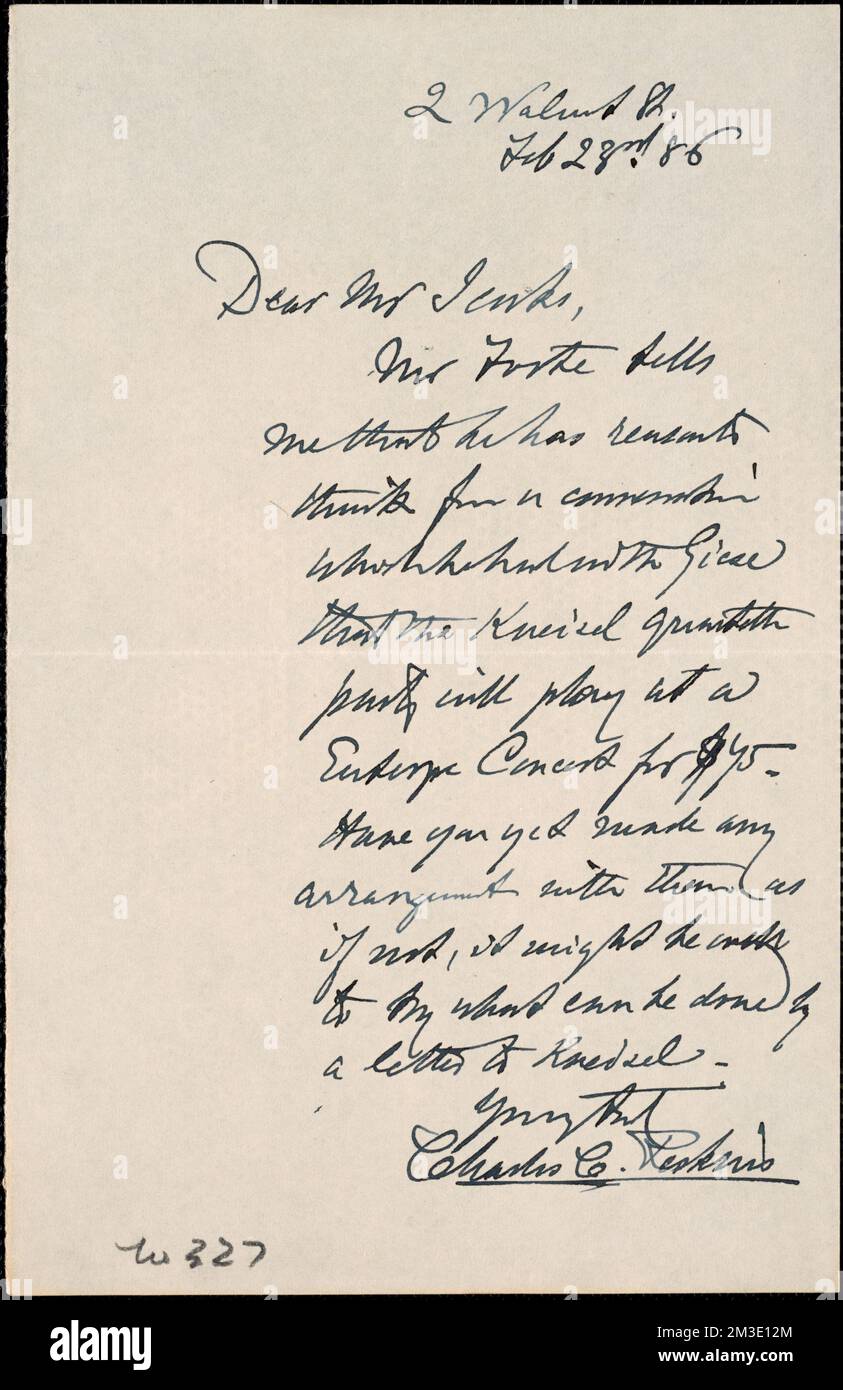 2 Walnut St.
Feb 23rd. 86
Dear Mr Jenks,
Mr Foote tells
me that he has reason to
think from a conversation
which he had with Giese
that the Kneisel quartette
party will play at a
Euterpe Concert for $75-
Have you yet made any
arrangement with them as
if not, it might be well
to try what can be done by
a letter to Kneisel -
Yours truly
Charles C. Perkins
327
alamy
Image ID: 2M3E12M
www.alamy.com